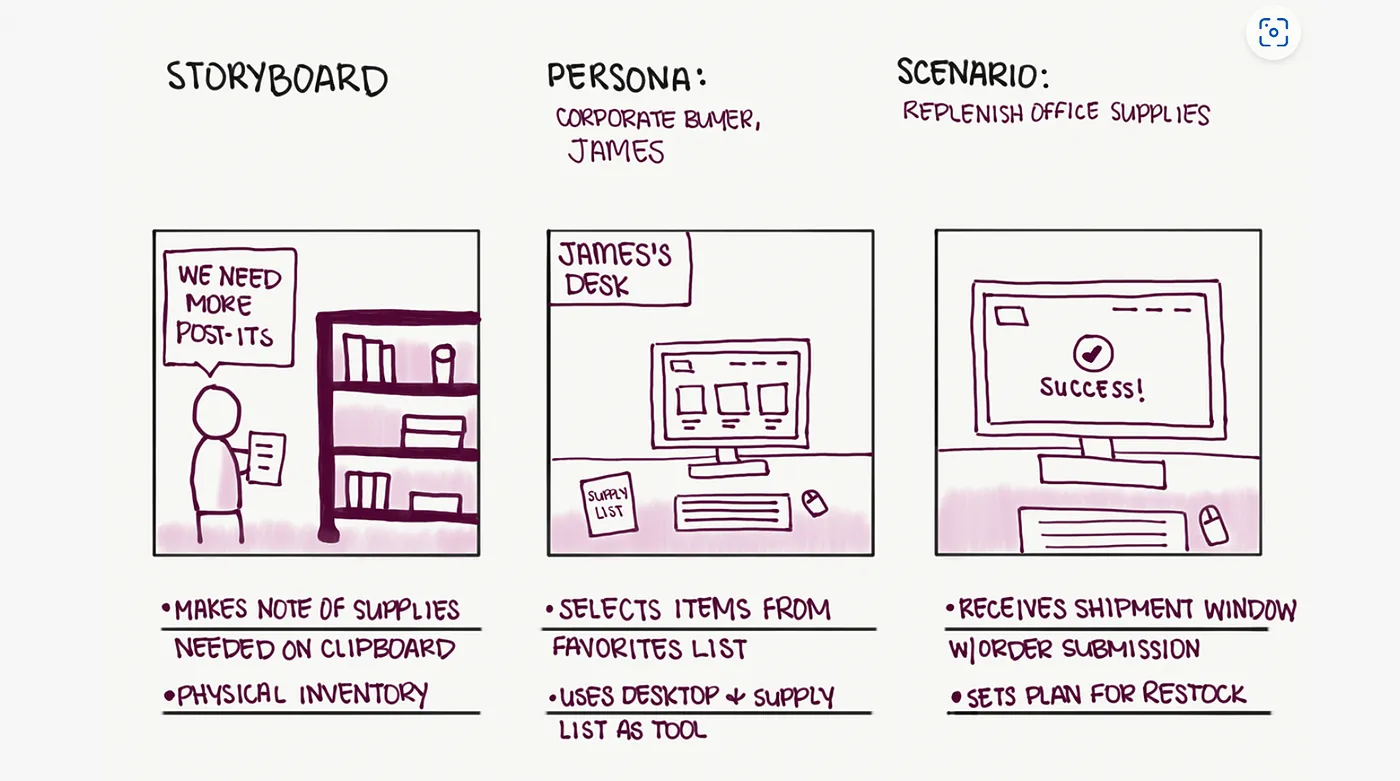 STORYBOARD
PERSONA:
CORPORATE BUYER,
JAMES
SCENARIO:
REPLENISH OFFICE SUPPLIES
WE NEED
MORE
POST-ITS
JAMES'S
DESK
SUPPLY
LIST
SUCCESS!
•MAKES NOTE OF SUPPLIES
NEEDED ON CLIPBOARD
•PHYSICAL INVENTORY
•SELECTS ITEMS FROM
FAVORITES LIST
•USES DESKTOP & SUPPLY
LIST AS TOOL
•RECEIVES SHIPMENT WINDOW
W/ORDER SUBMISSION
•SETS PLAN FOR RESTOCK